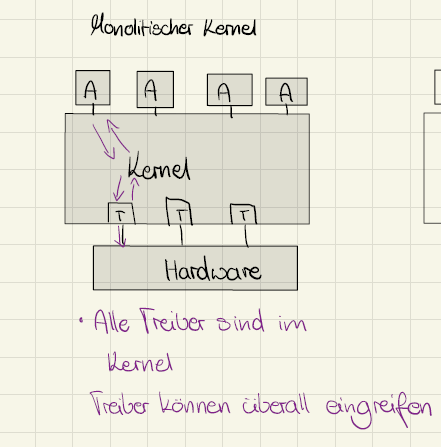 Monolitischer Kernel
A A A A
Kernel
T T T
Hardware
• Alle Treiber sind im
Kernel
Treiber können überall eingreifen